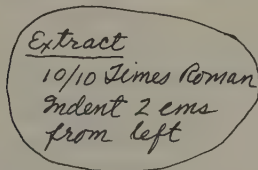 Extract
10/10 Times Roman
Indent 2 ems
from left